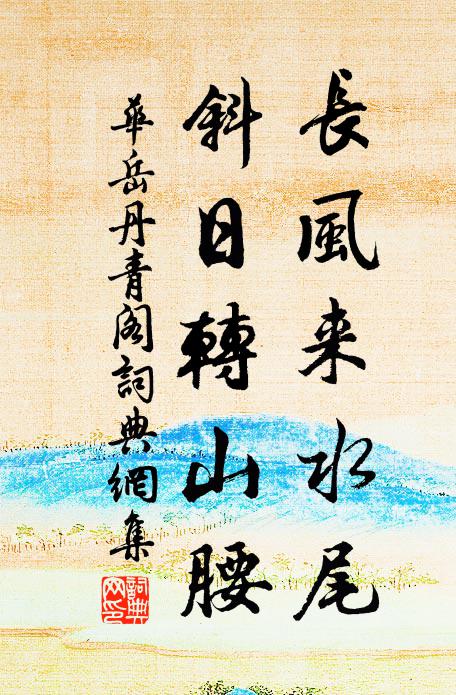 長風来水尾
斜日轉山腰
華岳丹青閣詞典網集
詞典